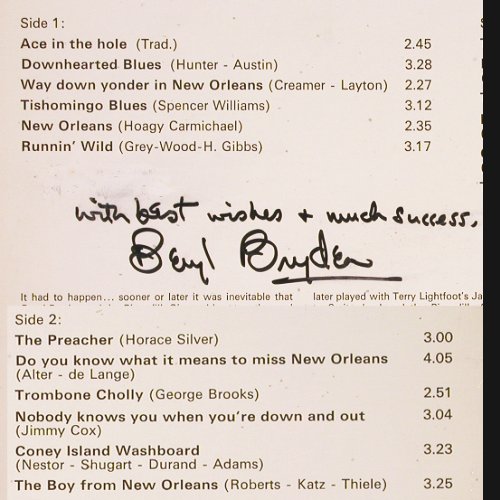 Side 1:
Ace in the hole (Trad.) 2.45
Downhearted Blues (Hunter - Austin) 3.28
Way down yonder in New Orleans (Creamer - Layton) 2.27
Tishomingo Blues (Spencer Williams) 3.12
New Orleans (Hoagy Carmichael) 2.35
Runnin' Wild (Grey-Wood-H. Gibbs) 3.17
with best wishes + much success,
Beryl Bryden
It had to happen... sooner or later it was inevitable that later played with Terry Lightfoot's Ja
Side 2:
The Preacher (Horace Silver) 3.00
Do you know what it means to miss New Orleans 4.05
(Alter - de Lange)
Trombone Cholly (George Brooks) 2.51
Nobody knows you when you're down and out 3.04
(Jimmy Cox)
Coney Island Washboard 3.23
(Nestor - Shugart - Durand - Adams)
The Boy from New Orleans (Roberts - Katz - Thiele) 3.25